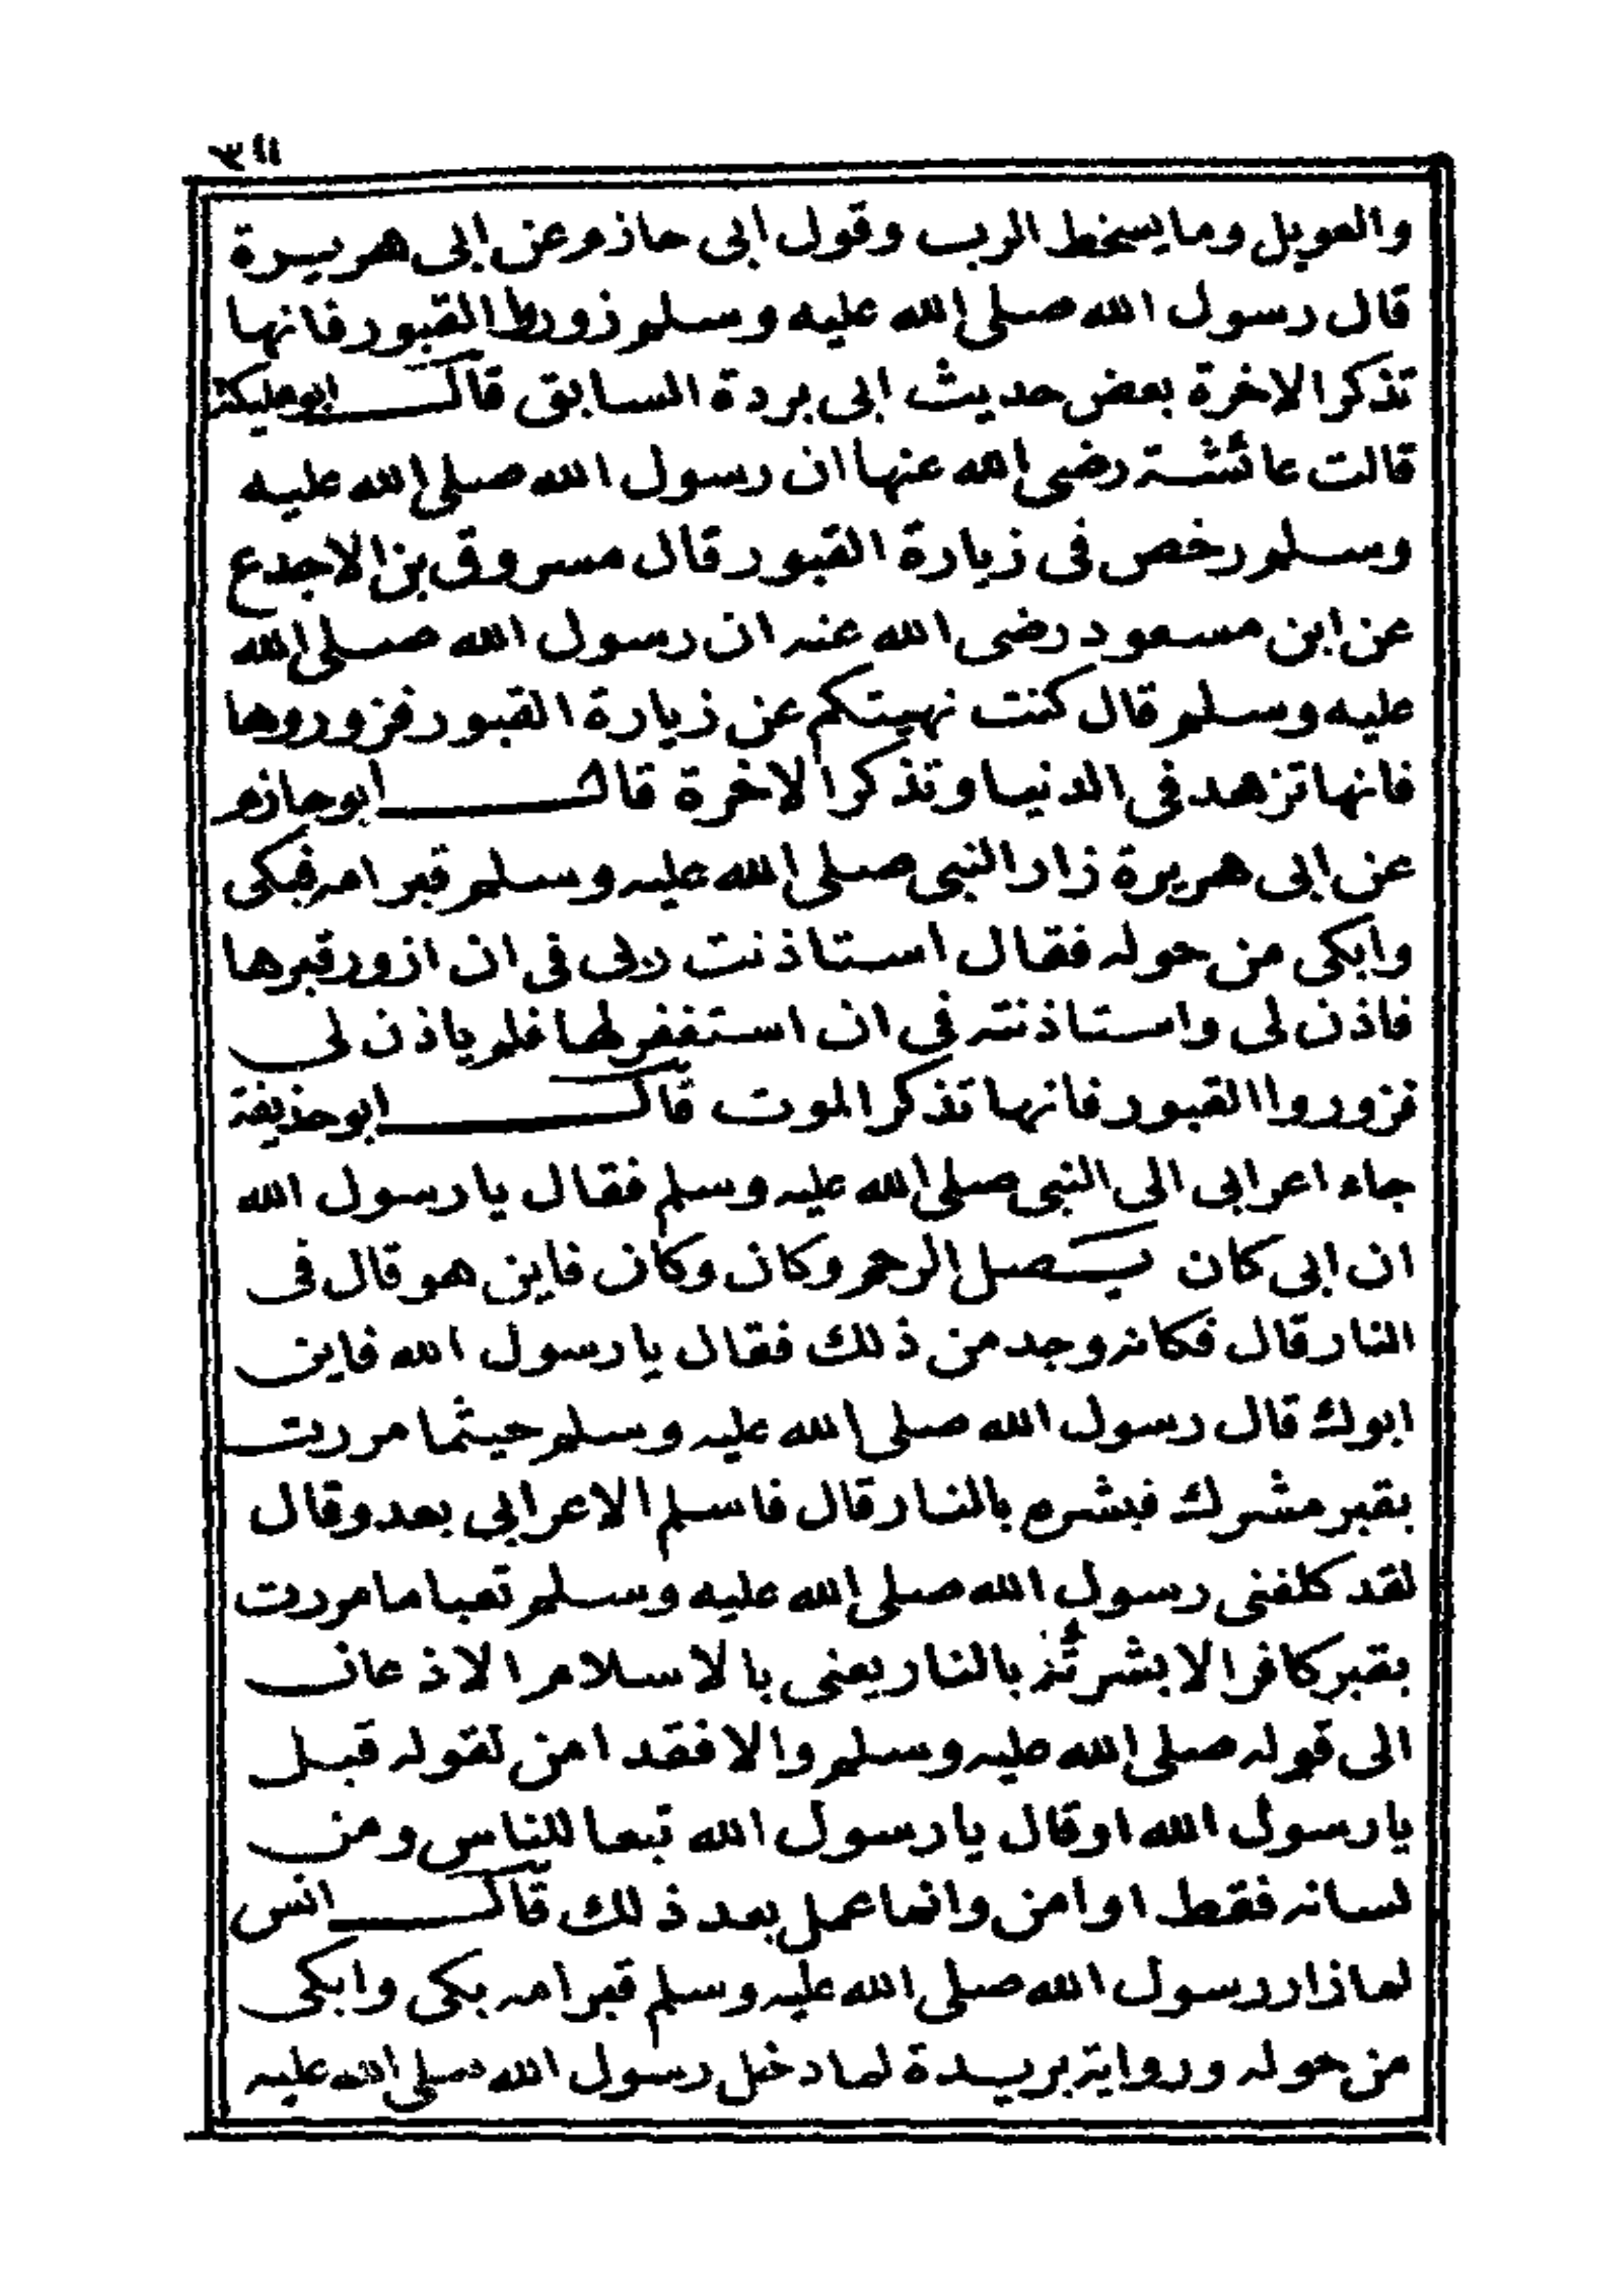 ٣١١
والعويل ومايسخط الرب وقول ابى حازم عن ابى هريرة
قال رسول الله صلى الله عليه وسلم زوروا القبور فانها
تذكر الاخرة بعض حديث ابى بردة السابق قال ابومليكة
قالت عائشة رضى الله عنها ان رسول الله صلى الله عليه
وسلم رخص فى زيارة القبور قال مسروق بن الاجدع
عن ابن مسعود رضى الله عنه ان رسول الله صلى الله
عليه وسلم قال كنت نهيتكم عن زيارة القبور فزوروها
فانها تزهد فى الدنيا وتذكر الاخرة قال ابوحازم
عن ابى هريرة زار النبى صلى الله عليه وسلم قبر امه فبكى
وابكى من حوله فقال استاذنت ربى فى ان ازور قبرها
فاذن لى واستاذنته فى ان استغفر لها فلم ياذن لى
فزوروا القبور فانها تذكر الموت قال ابوحذيفة
جاء اعرابى الى النبى صلى الله عليه وسلم فقال يا رسول الله
ان ابى كان يصل الرحم وكان وكان فاين هو قال فى
النار قال فكانه وجد من ذلك فقال يا رسول الله فاين
ابوك قال رسول الله صلى الله عليه وسلم حيثما مررت
بقبر مشرك فبشره بالنار قال فاسلم الاعرابى بعد وقال
لقد كلفنى رسول الله صلى الله عليه وسلم تعبا ما مررت
بقبر كافر الا بشرته بالنار يعنى بالاسلام الاذعان
الى قوله صلى الله عليه وسلم والا فقد امن لقوله قبل
يا رسول الله او قال يا رسول الله تبعا للناس ومن
لسانه فقط او امن وانما عمل بعد ذلك قال انس
لما زار رسول الله صلى الله عليه وسلم قبر امه بكى وابكى
من حوله ورواية بريدة لما دخل رسول الله صلى الله عليه